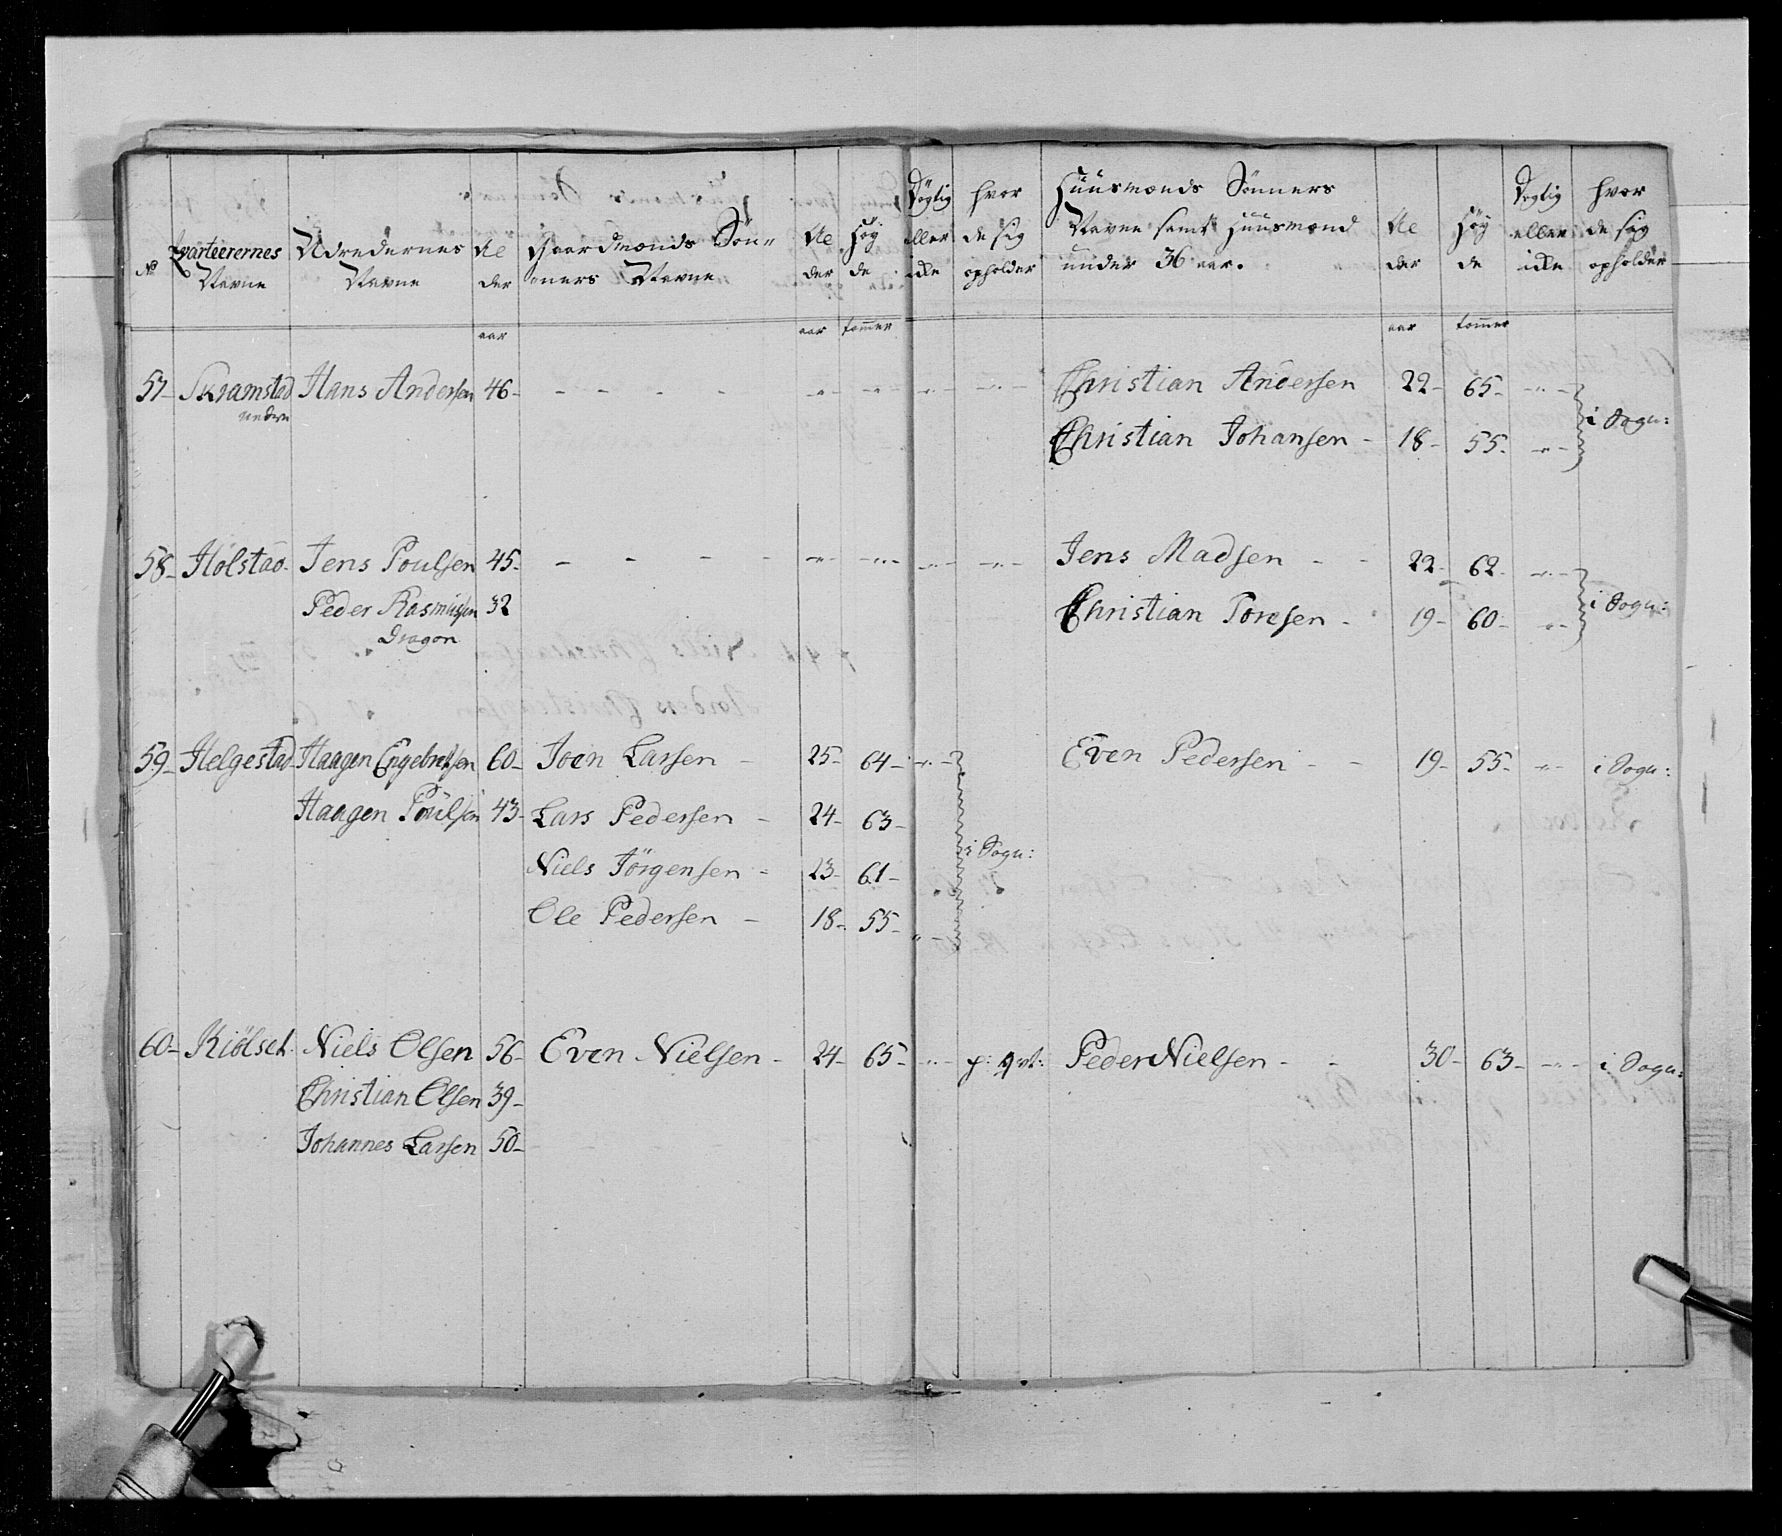 No
Qvarteerernes Navne
Udredernes Navne
Alder
Gaardmænds Sönners Navne
Alder
Høyde
Dygtig eller icke
hvor de sig opholder
Huusmænds Sönners Navne samt Huusmænd under 36 aar.
Alder
Høyde
Dygtig eller icke
hvor de sig opholder
aar aar tommer aar tommer
57- Skramstad Hans Andersen 46- Christian Andersen 22- 65-
nedre
Christian Johansen - 18- 55- i Sogn:
58- Holstad- Jens Poulsen 45- Jens Madsen 22- 62-
Peder Rasmusen 32 Christian Toresen - 19- 60- i Sogn:
Dragon
59- Helgestad Haagen Engebretsen 60- Joen Larsen - 25- 64- Even Pedersen 19- 55- i Sogn:
Haagen Poulsen 43- Lars Pedersen - 24- 63-
Niels Jörgensen - 23- 61- i Sogn:
Ole Pedersen - 18- 55-
60- Kiölset Niels Olsen 56- Even Nielsen - 24- 65- p: qvt: Peder Nielsen - 30- 63- i Sogn:
Christian Olsen 39-
Johannes Larsen 50-